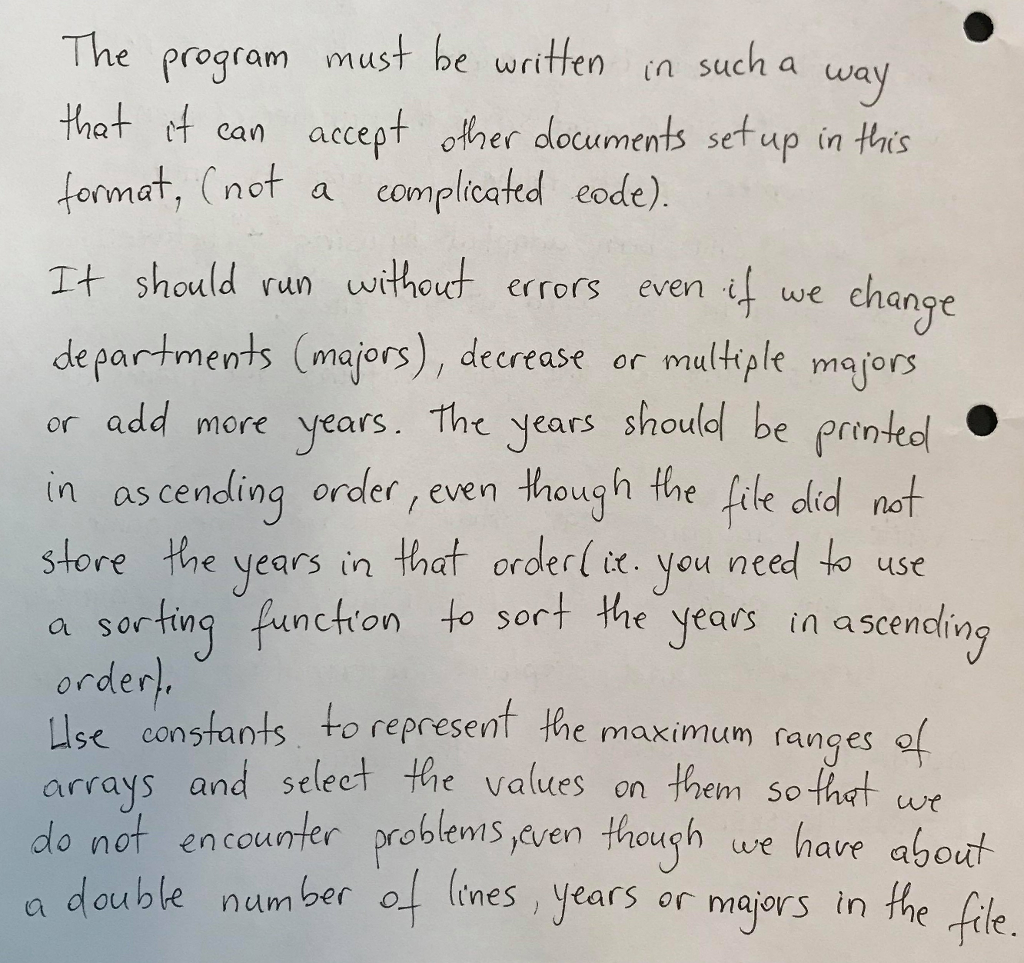 The program must be written in such a way
that it can accept other documents set up in this
format, (not a complicated code).
It should run without errors even if we change
departments (majors), decrease or multiple majors
or add more years. The years should be printed
in ascending order, even though the file did not
store the years in that order(i.e. you need to use
a sorting function to sort the years in ascending
order).
Use constants to represent the maximum ranges of
arrays and select the values on them so that we
do not encounter problems, even though we have about
a double number of lines, years or majors in the file.